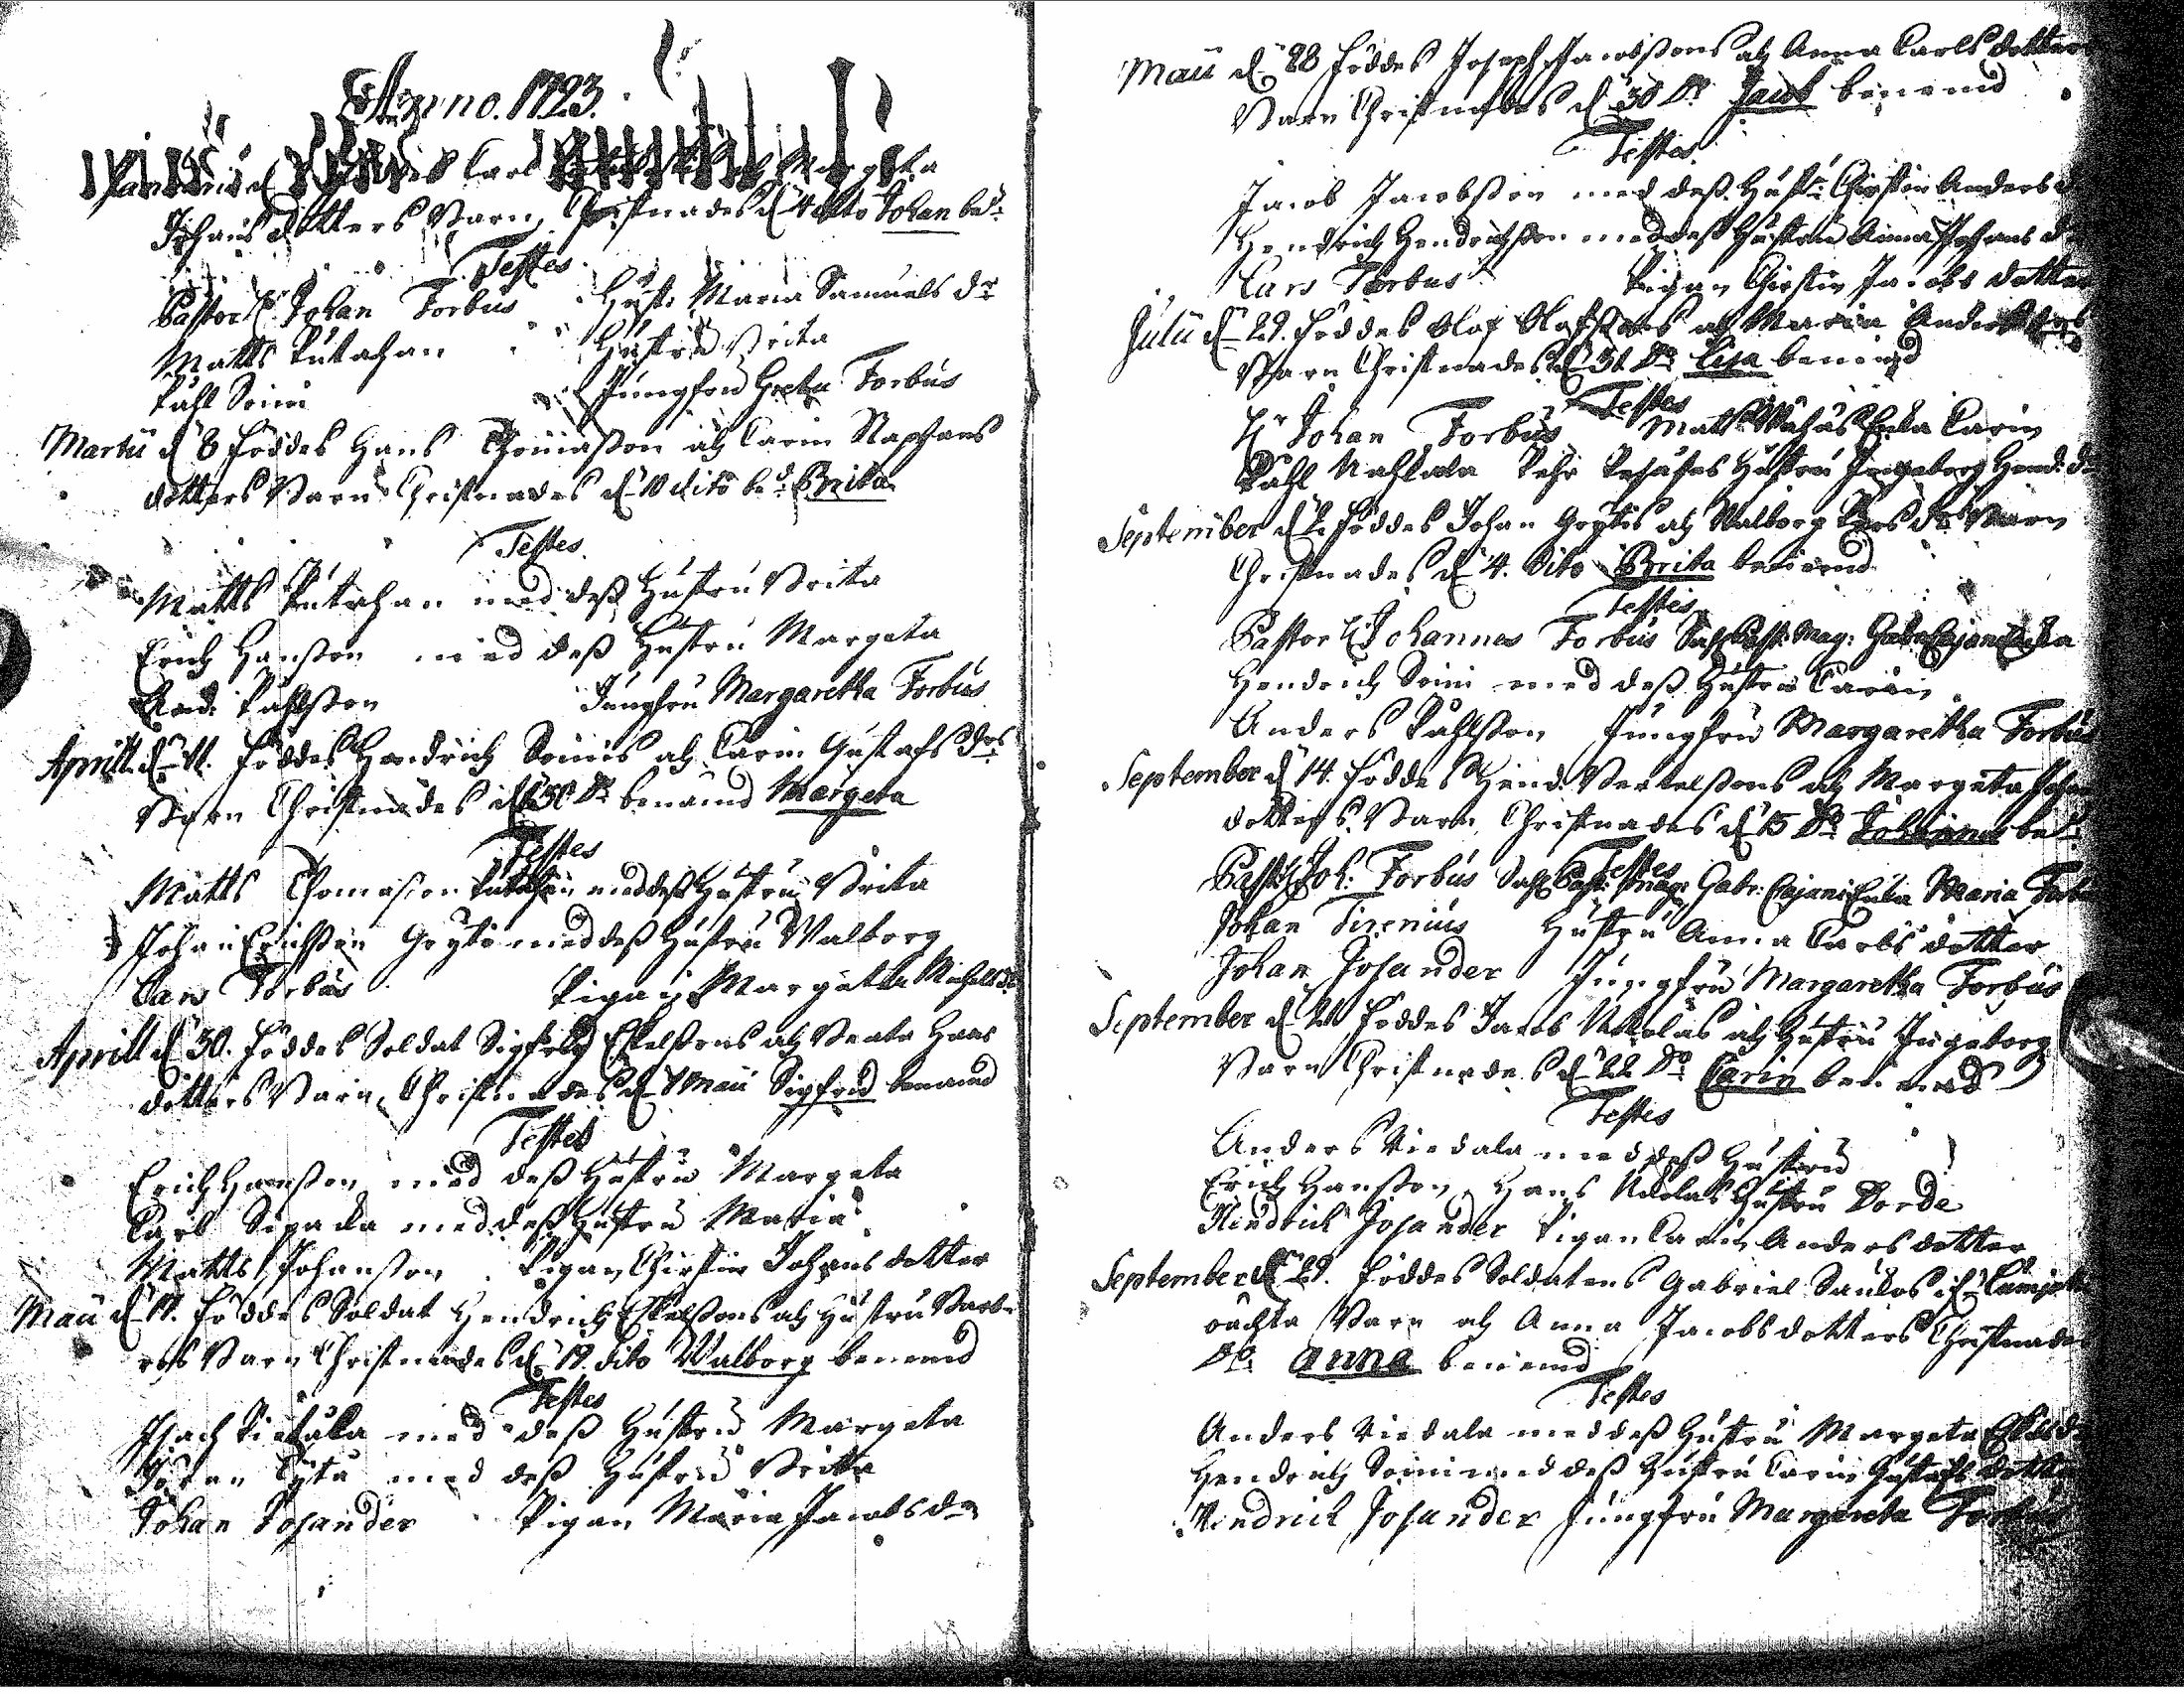 Anno. 1723.
Januarii d Carl Margeta
Johans dotters Barn, Christnades d 4 dito Johan be:d
Testes
Pastor H:r Johan Forbus Hust: Maria Samuels d:r
Matts Putahan Hustru Brita
Påhl Soini Jungfru Greta Forbus
Martii d 8 föddes Hans Thomasson oh Carin Staphans
dotters Barn Christnades d 10 dito be:d Brita
Testes
Matts Putahan med deß Hustru Brita
Erich Hansson med deß Hustru Margeta
And: Påhlsson Jungfru Margaretha Forbus
Aprill d föddes Hendrich Soinis oh Carin Gustafs d:rs
Barn Christnades d 30 D:o benamd Margeta
Testes
Matts Thomasson Putahan med deß Hustru Brita
Johan Erichsson Gryta med deß Hustru Walborg
Lars Forbus Pigan Margetha Michels d:r
Aprill d 30. föddes Soldat Sigfred Eskelssons oh Beata Hans
dotters Barn, Christnades d Maii Sigfred benamd
Testes
Erich Hansson med deß Hustru Margeta
Carl Sipaka med deß Hustru Maria
Matts Johansson Pigan Chirstin Johans dotter
Maii d 17. föddes Soldat Hendrich Eskelssons oh Hustru Barb-
ros Barn Christnades d 19. dito Walborg benemd
Testes
Isach Pietula med deß Hustru Margeta
Göran Lytä med deß Hustru Brita
Johan Josander Pigan Maria Jacobs d:r
Maii d 28 föddes Joseph Jacobssons oh Anna Carls dotters
Barn Christnades d 30 D:o Jacob benemd
Testes
Jacob Jacobsson med deß Hust: Chirstin Anders d
Hendrich Hendrichsson med deß Hustru Anna Johans d
Lars Forbus Pigan Chirstin Jacobs dotter
Julii d 29. föddes Olof Olofssons oh Maria Anders d:rs
Barn Christnades d 31 D:o Lisa benemd
Testes
H:r Johan Forbus Matts Enka Carin
Påhl Uahlala Pehr Hustru Ingeborg Hend: d:r
September d 2 föddes Johan Grytis oh Walborg Lars d:rs Barn
Christnades d 4. dito Brita benemd
Testes
Pastor H:r Johannes Forbus Sal: Past: Mag: Gabr: Cajani Enka
Hendrich Soini med deß Hustru Carin
Anders Påhlsson Jungfru Margaretha Forbus
September d 14. föddes Hend: Bertelssons oh Margeta Johans
dotters Barn, Christnades d 15 D:o Johannes be:d
Testes
Past: H:r Joh: Forbus Sal: Past: Mag: Gabr: Cajani Enka Maria Forbus
Johan Sirenius Hustru Anna Carls dotter
Johan Josander Jungfru Margaretha Forbus
September d 21 föddes Jacob Uckolas oh Hustru Ingeborg
Barn Christnades d 22 D:o Carin benemd
Testes
Anders Viedala med deß Hustru
Erich Hansson, Hans Uckolas Hustru Dorde
Hindrich Josander Pigan Carin Anders dotter
September d 29. föddes Soldatens Gabriel Saukos if:n
Barn oh Anna Jacobsdotters Christnades
D:o Anna benemd
Testes
Anders Viedala med deß Hustru Margeta Eskils d
Hendrich Soini med deß Hustru Carin Gustafs dotter
Hindrich Josander Jungfru Margareta Forbus